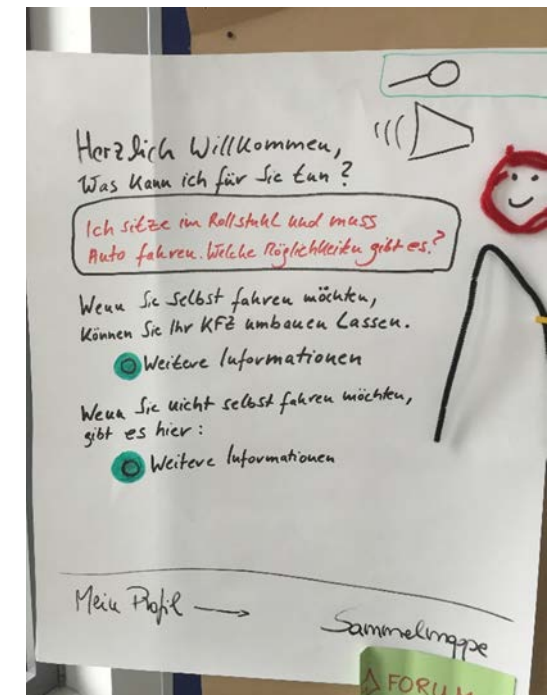 Herzlich Willkommen,
Was kann ich für Sie tun?
Ich sitze im Rollstuhl und muss
Auto fahren. Welche Möglichkeiten gibt es?
Wenn Sie selbst fahren möchten,
können Sie Ihr KFZ umbauen lassen.
Weitere Informationen
Wenn Sie nicht selbst fahren möchten,
gibt es hier:
Weitere Informationen
Mein Profil
Sammelmappe
FORUM